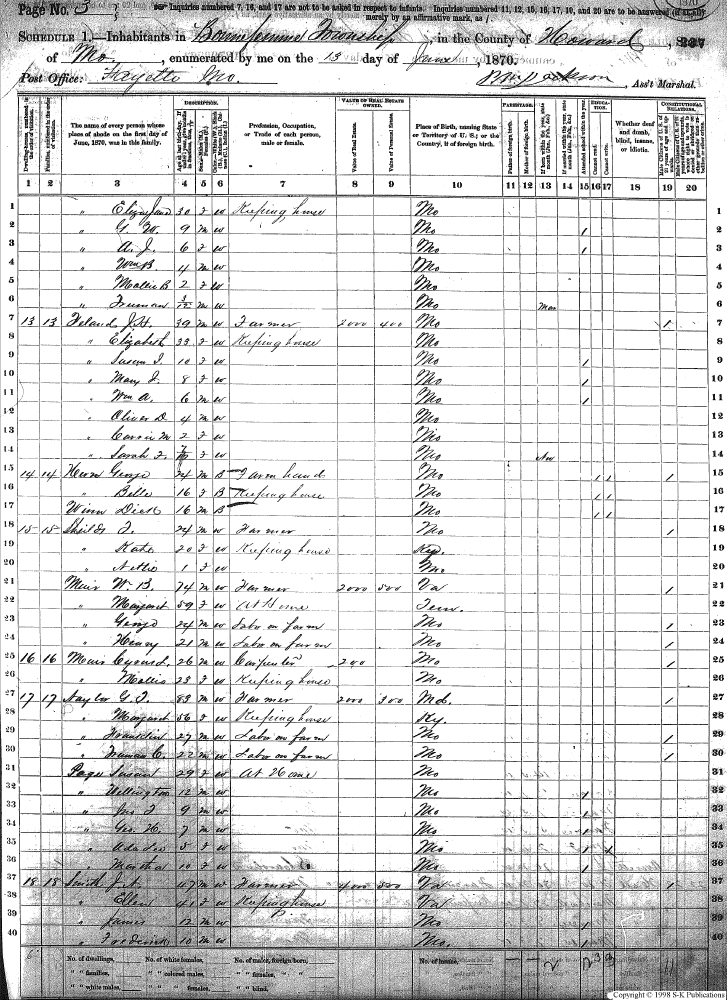 Page No. 3
Inquiries numbered 7, 16, and 17 are not to be asked in respect to infants. Inquiries numbered 11, 12, 15, 16, 17, 19, and 20 are to be answered (if at all) merely by an affirmative mark, as /.
SCHEDULE 1.—Inhabitants in Bonne Femme Township, in the County of Howard, State
of Mo, enumerated by me on the 13 day of June, 1870.
Post Office: Fayette Mo. , Ass't Marshal.
DESCRIPTION. VALUE OF REAL ESTATE OWNED. PARENTAGE. EDUCATION. CONSTITUTIONAL RELATIONS.
The name of every person whose place of abode on the first day of June, 1870, was in this family.
Profession, Occupation, or Trade of each person, male or female.
Value of Real Estate. Value of Personal Estate.
Place of Birth, naming State or Territory of U. S.; or the Country, if of foreign birth.
Father of foreign birth. Mother of foreign birth.
Attended school within the year. Cannot read. Cannot write.
Whether deaf and dumb, blind, insane, or idiotic.
1 2 3 4 5 6 7 8 9 10 11 12 13 14 15 16 17 18 19 20
1 " Eliza Jane 30 f w Keeping house Mo 1
2 " G. W. 9 m w Mo / 2
3 " A. J. 6 f w Mo / 3
4 " Wm B. 4 m w Mo 4
5 " Mollie B 2 f w Mo 5
6 " Truman 3/12 m w Mo Mar 6
7 13 13 J. H. 39 m w Farmer 2000 400 Mo / 7
8 " Elizabeth 33 f w Keeping house Mo 8
9 " Susan 10 f w Mo / 9
10 " Mary J. 8 f w Mo / 10
11 " Wm A. 6 m w Mo / 11
12 " Oliver D 4 m w Mo 12
13 " Carrie M 2 f w Mo 13
14 " Sarah f w Mo 14
15 14 14 George 24 m B Farm hand Mo / / / 15
16 " Belle 16 f B Keeping house Mo / / 16
17 Winn Dick 16 m B Mo / / 17
18 15 15 Shields 24 m w Farmer Mo / 18
19 " Kate 20 f w Keeping house Ky. 19
20 " Nettie 1 f w Mo 20
21 Muir W. B. 74 m w Farmer 2000 500 Va / 21
22 " Margaret 59 f w At Home Tenn. 22
23 " George 24 m w Labor on farm Mo / 23
24 " Henry 21 m w Labor on farm Mo / 24
25 16 16 Muir 26 m w Carpenter 200 Mo / 25
26 " Mollie 23 f w Keeping house Mo 26
27 17 17 Naylor G. T. 83 m w Farmer 2000 300 Md. / 27
28 " Margaret 56 f w Keeping house Ky. 28
29 " Franklin 27 m w Labor on farm Mo / 29
30 " Truman C. 22 m w Labor on farm Mo / 30
31 Page Susan 29 f w At Home Mo 31
32 " Wellington 12 m w Mo / 32
33 " Jno 9 m w Mo / 33
34 " Geo. H. 7 m w Mo / 34
35 " 5 f w Mo / 35
36 " Martha 10 f w Mo / 36
37 18 18 Smith 47 m w Farmer 4000 500 Va / 37
38 " Ellen 41 f w Keeping house Va 38
39 " James 12 m w Mo / 39
40 " Frederick 10 m w Mo. / 40
No. of dwellings, No. of white females, No. of males, foreign born, No. of insane,
" " families, " " colored males, " " females, " "
" " white males, " " " females, " " blind,
Copyright © 1998 S-K Publications